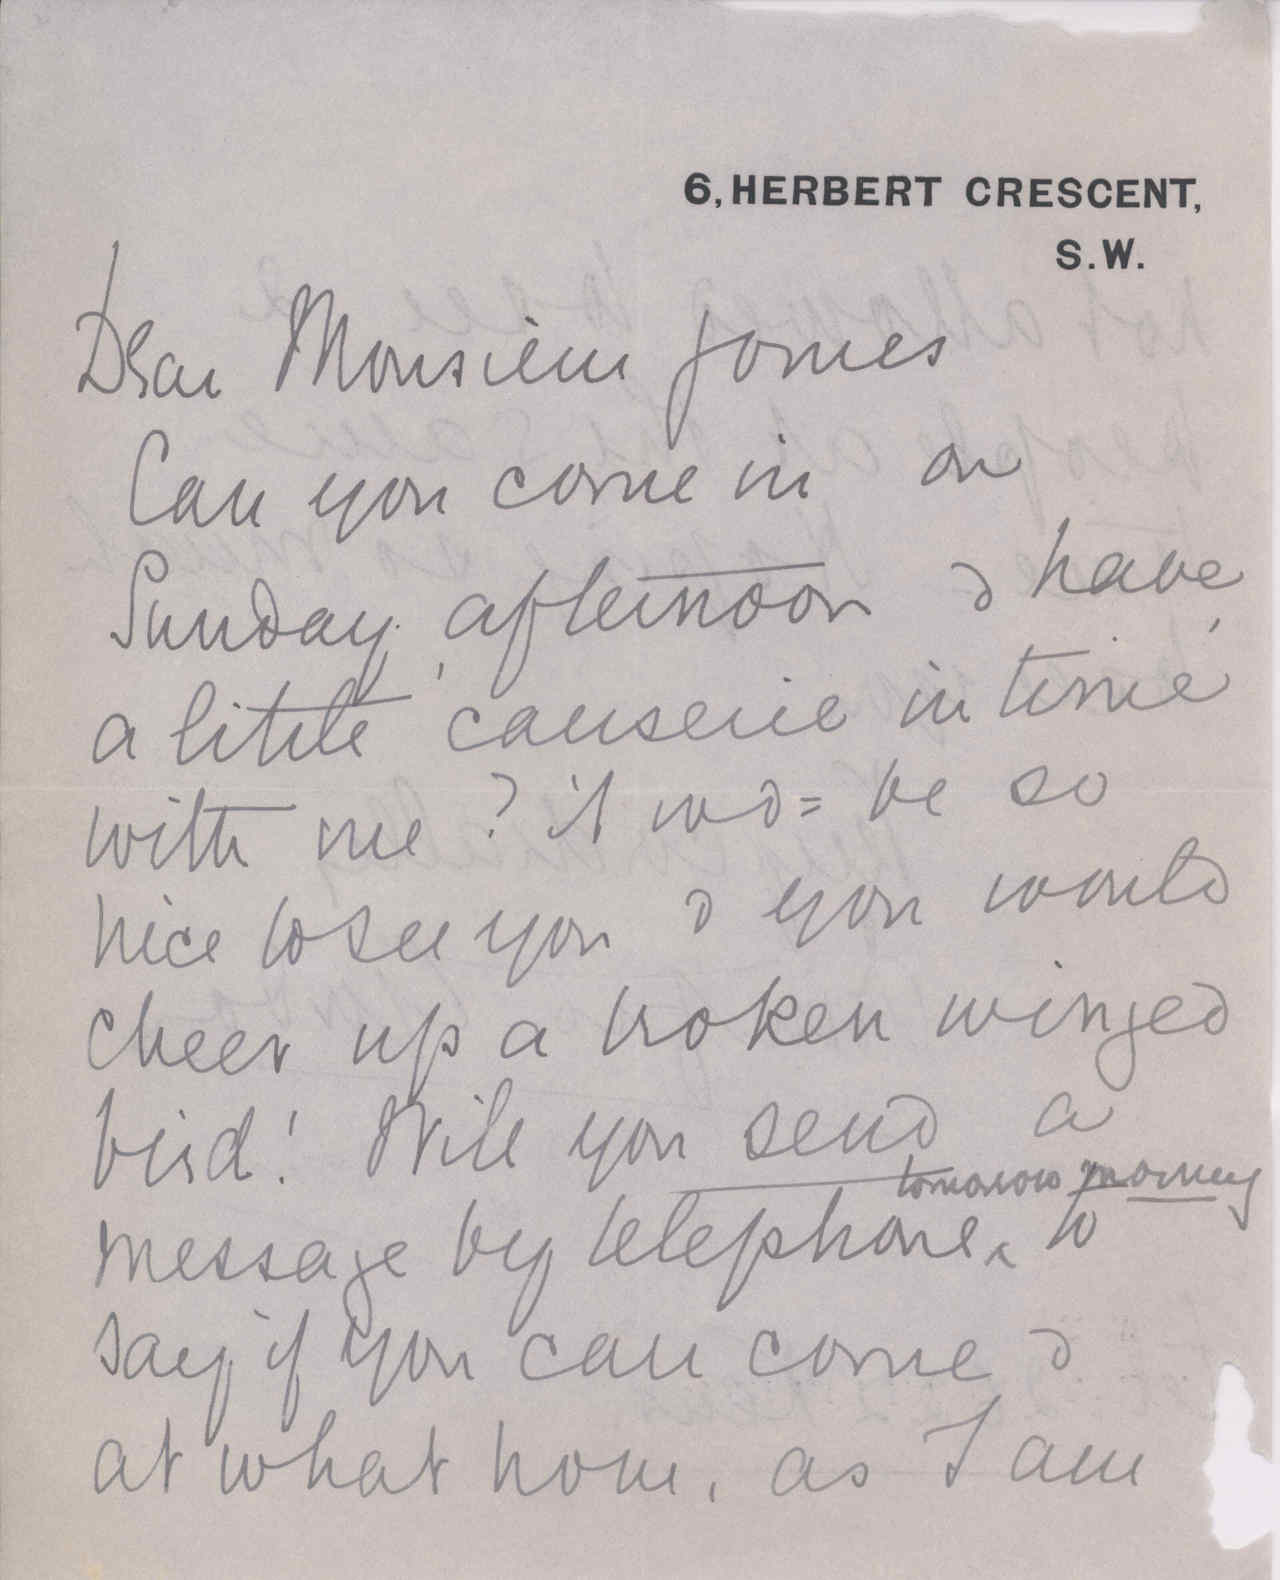 6, HERBERT CRESCENT,
S.W.
Dear Monsieur Jomes
Can you come in on
Sunday afternoon & have
a little causerie intime
with me? it wd= be so
nice to see you & you would
cheer up a broken winged
bird! Will you send a
tomorow morning
message by telephone ‸ to
say if you can come &
at what hour, as I am